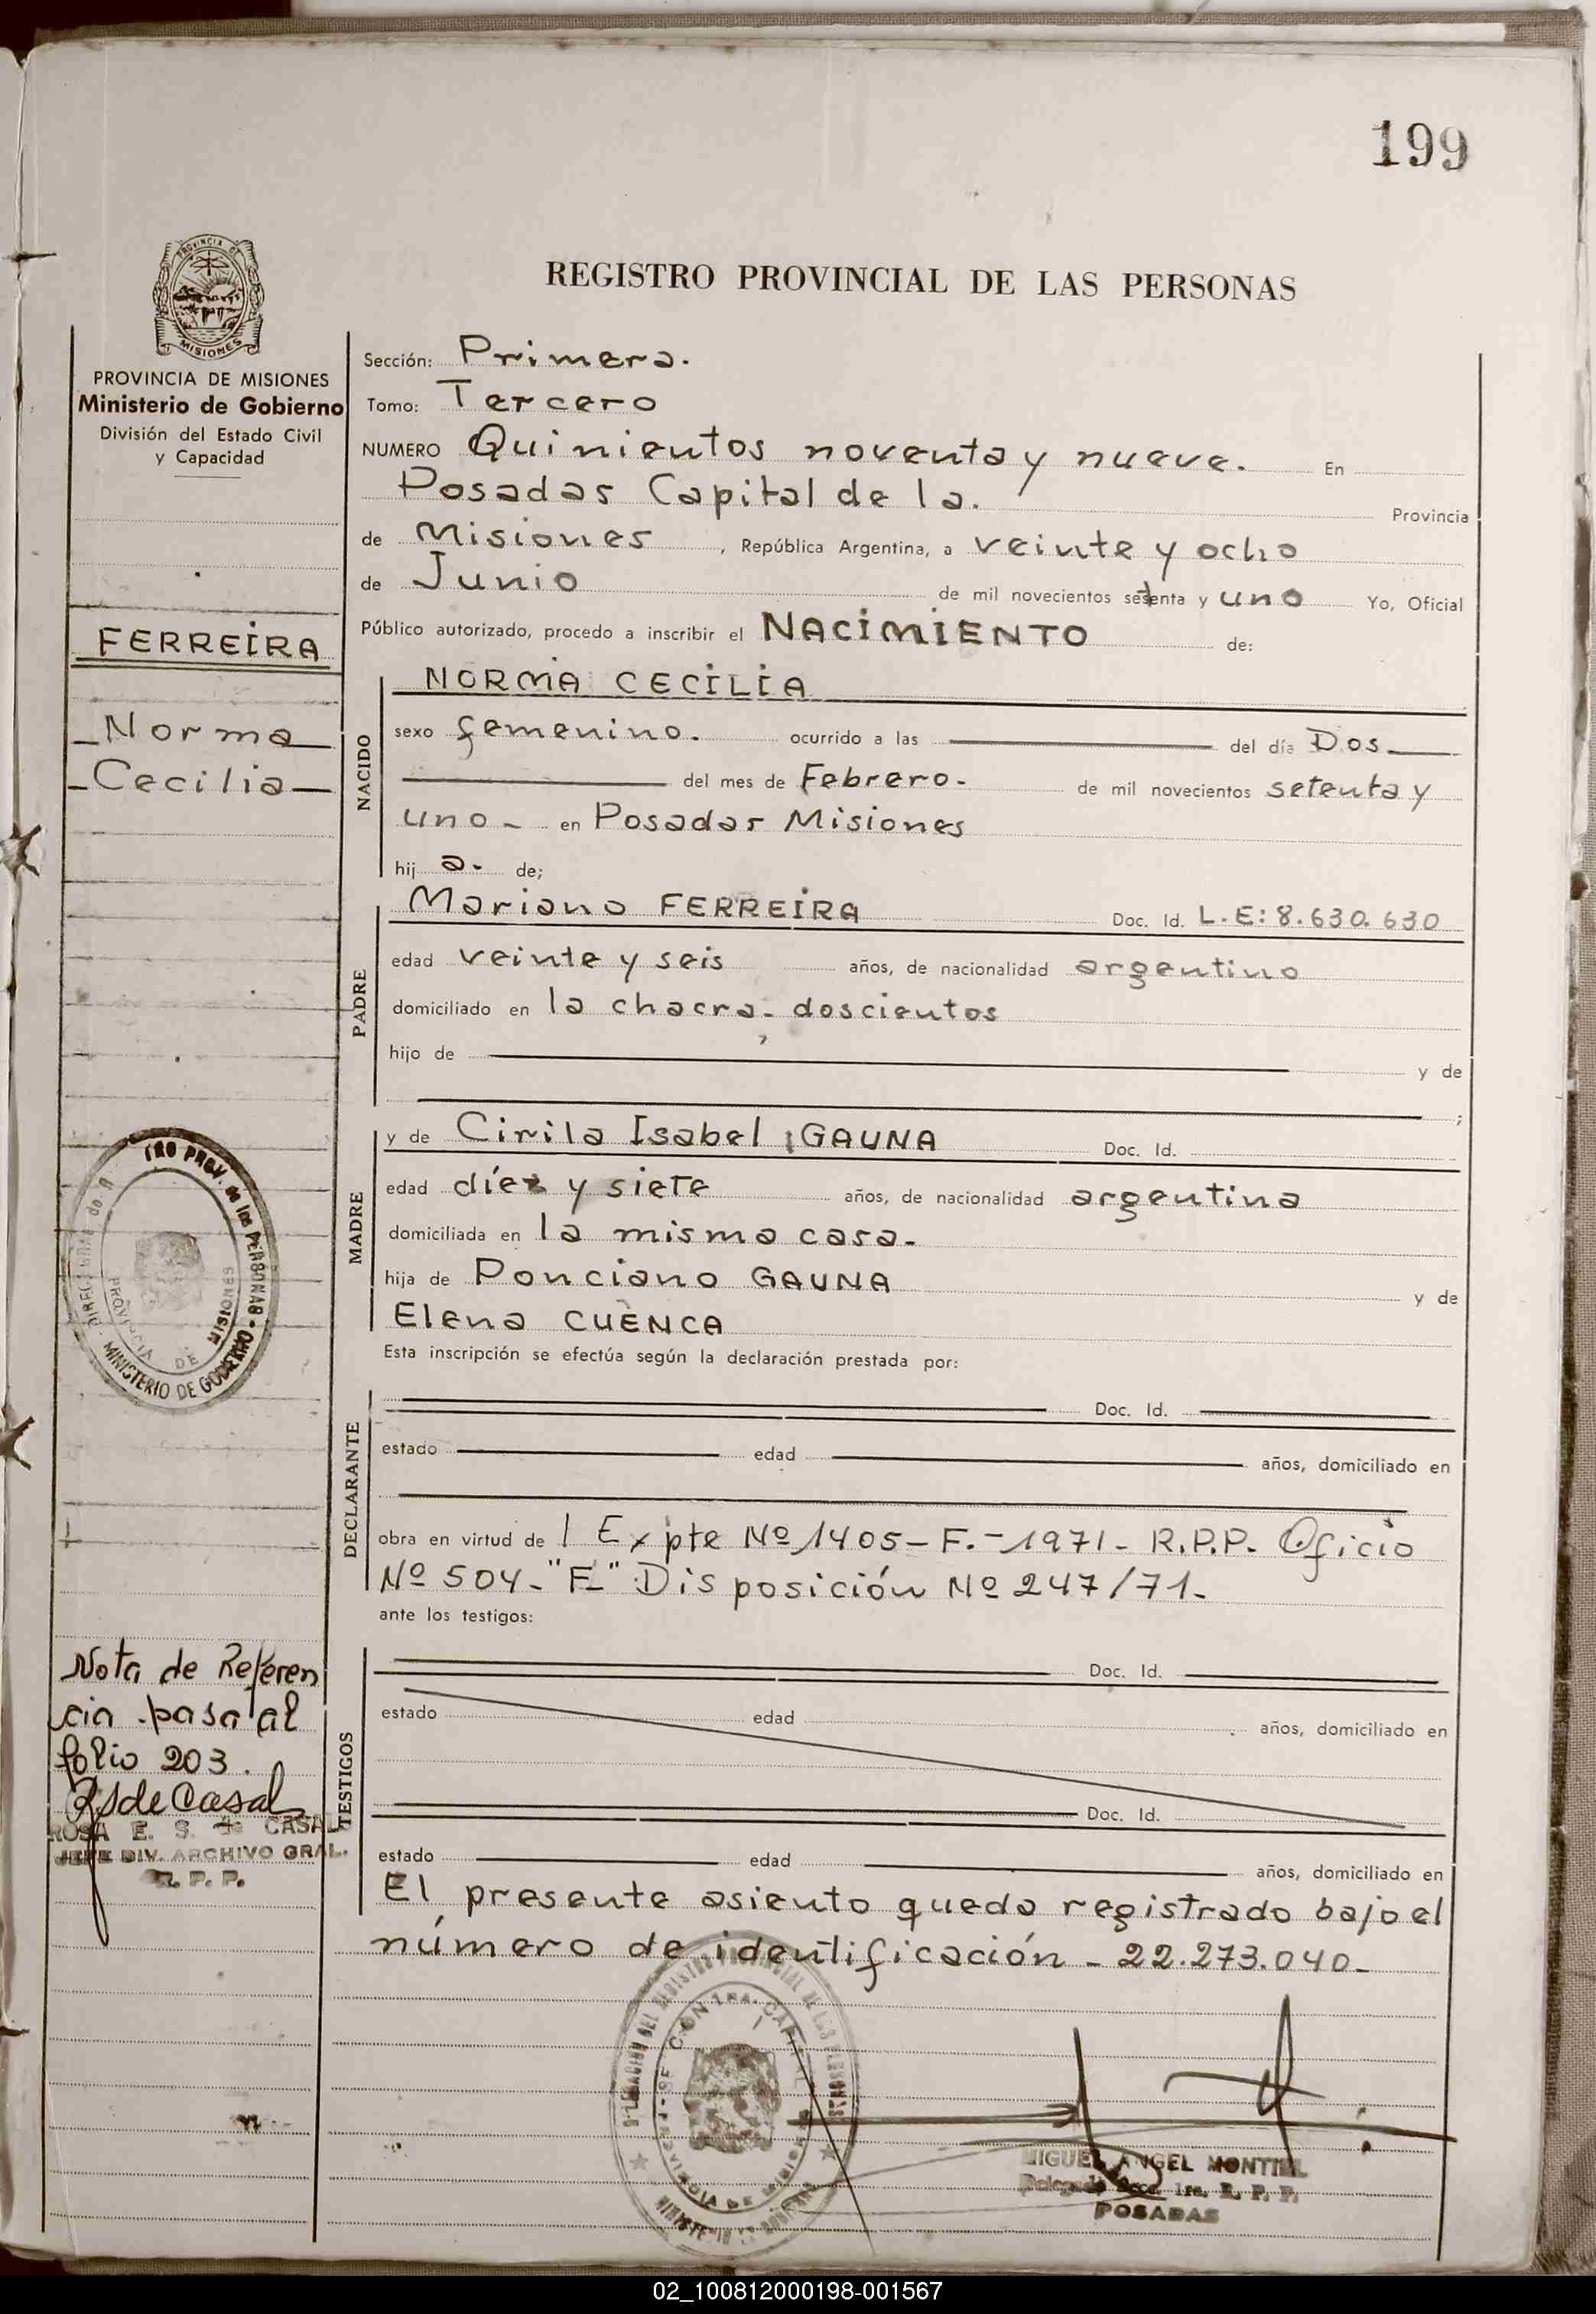 199
PROVINCIA DE
MISIONES
PROVINCIA DE MISIONES
Ministerio de Gobierno
División del Estado Civil
y Capacidad
FERREIRA
Norma
Cecilia
TRO PROV. de las PERSONAS - MINISTERIO DE GOBIERNO -
PROVINCIA DE MISIONES
Nota de Referen
cia pasa al
folio 203.
RSdeCasal
ROSA E. S. de CASAL
JEFE DIV. ARCHIVO GRAL.
R. P. P.
REGISTRO PROVINCIAL DE LAS PERSONAS
Sección: Primera.
Tomo: Tercero
NUMERO Quinientos noventa y nueve. En
Posadas Capital de la. Provincia
de Misiones, República Argentina, a veinte y ocho
de Junio de mil novecientos setenta y uno Yo, Oficial
Público autorizado, procedo a inscribir el NACIMIENTO de:
NACIDO
NORMA CECILIA
sexo femenino. ocurrido a las del día Dos
del mes de Febrero. de mil novecientos setenta y
uno - en Posadas Misiones
hij a. de;
PADRE
Mariano FERREIRA Doc. Id. L.E: 8.630.630
edad veinte y seis años, de nacionalidad argentino
domiciliado en la chacra doscientos
hijo de y de
;
MADRE
y de Cirila Isabel GAUNA Doc. Id.
edad díez y siete años, de nacionalidad argentina
domiciliada en la misma casa.
hija de Ponciano GAUNA y de
Elena CUENCA
Esta inscripción se efectúa según la declaración prestada por:
DECLARANTE
Doc. Id.
estado edad años, domiciliado en
obra en virtud de l Expte Nº 1405-F.-1971- R.P.P. Oficio
Nº 504-"F" Disposición Nº 247/71-
ante los testigos:
TESTIGOS
Doc. Id.
estado edad años, domiciliado en
Doc. Id.
estado edad años, domiciliado en
El presente asiento queda registrado bajo el
número de identificación - 22.273.040-
DELEGACION DEL REGISTRO PROVINCIAL DE LAS PERSONAS
SECCION 1ra. CAPITAL
PROVINCIA DE MISIONES
MIGUEL ANGEL MONTIEL
Delegado Secc. 1ra. R. P. P.
POSADAS
02_100812000198-001567